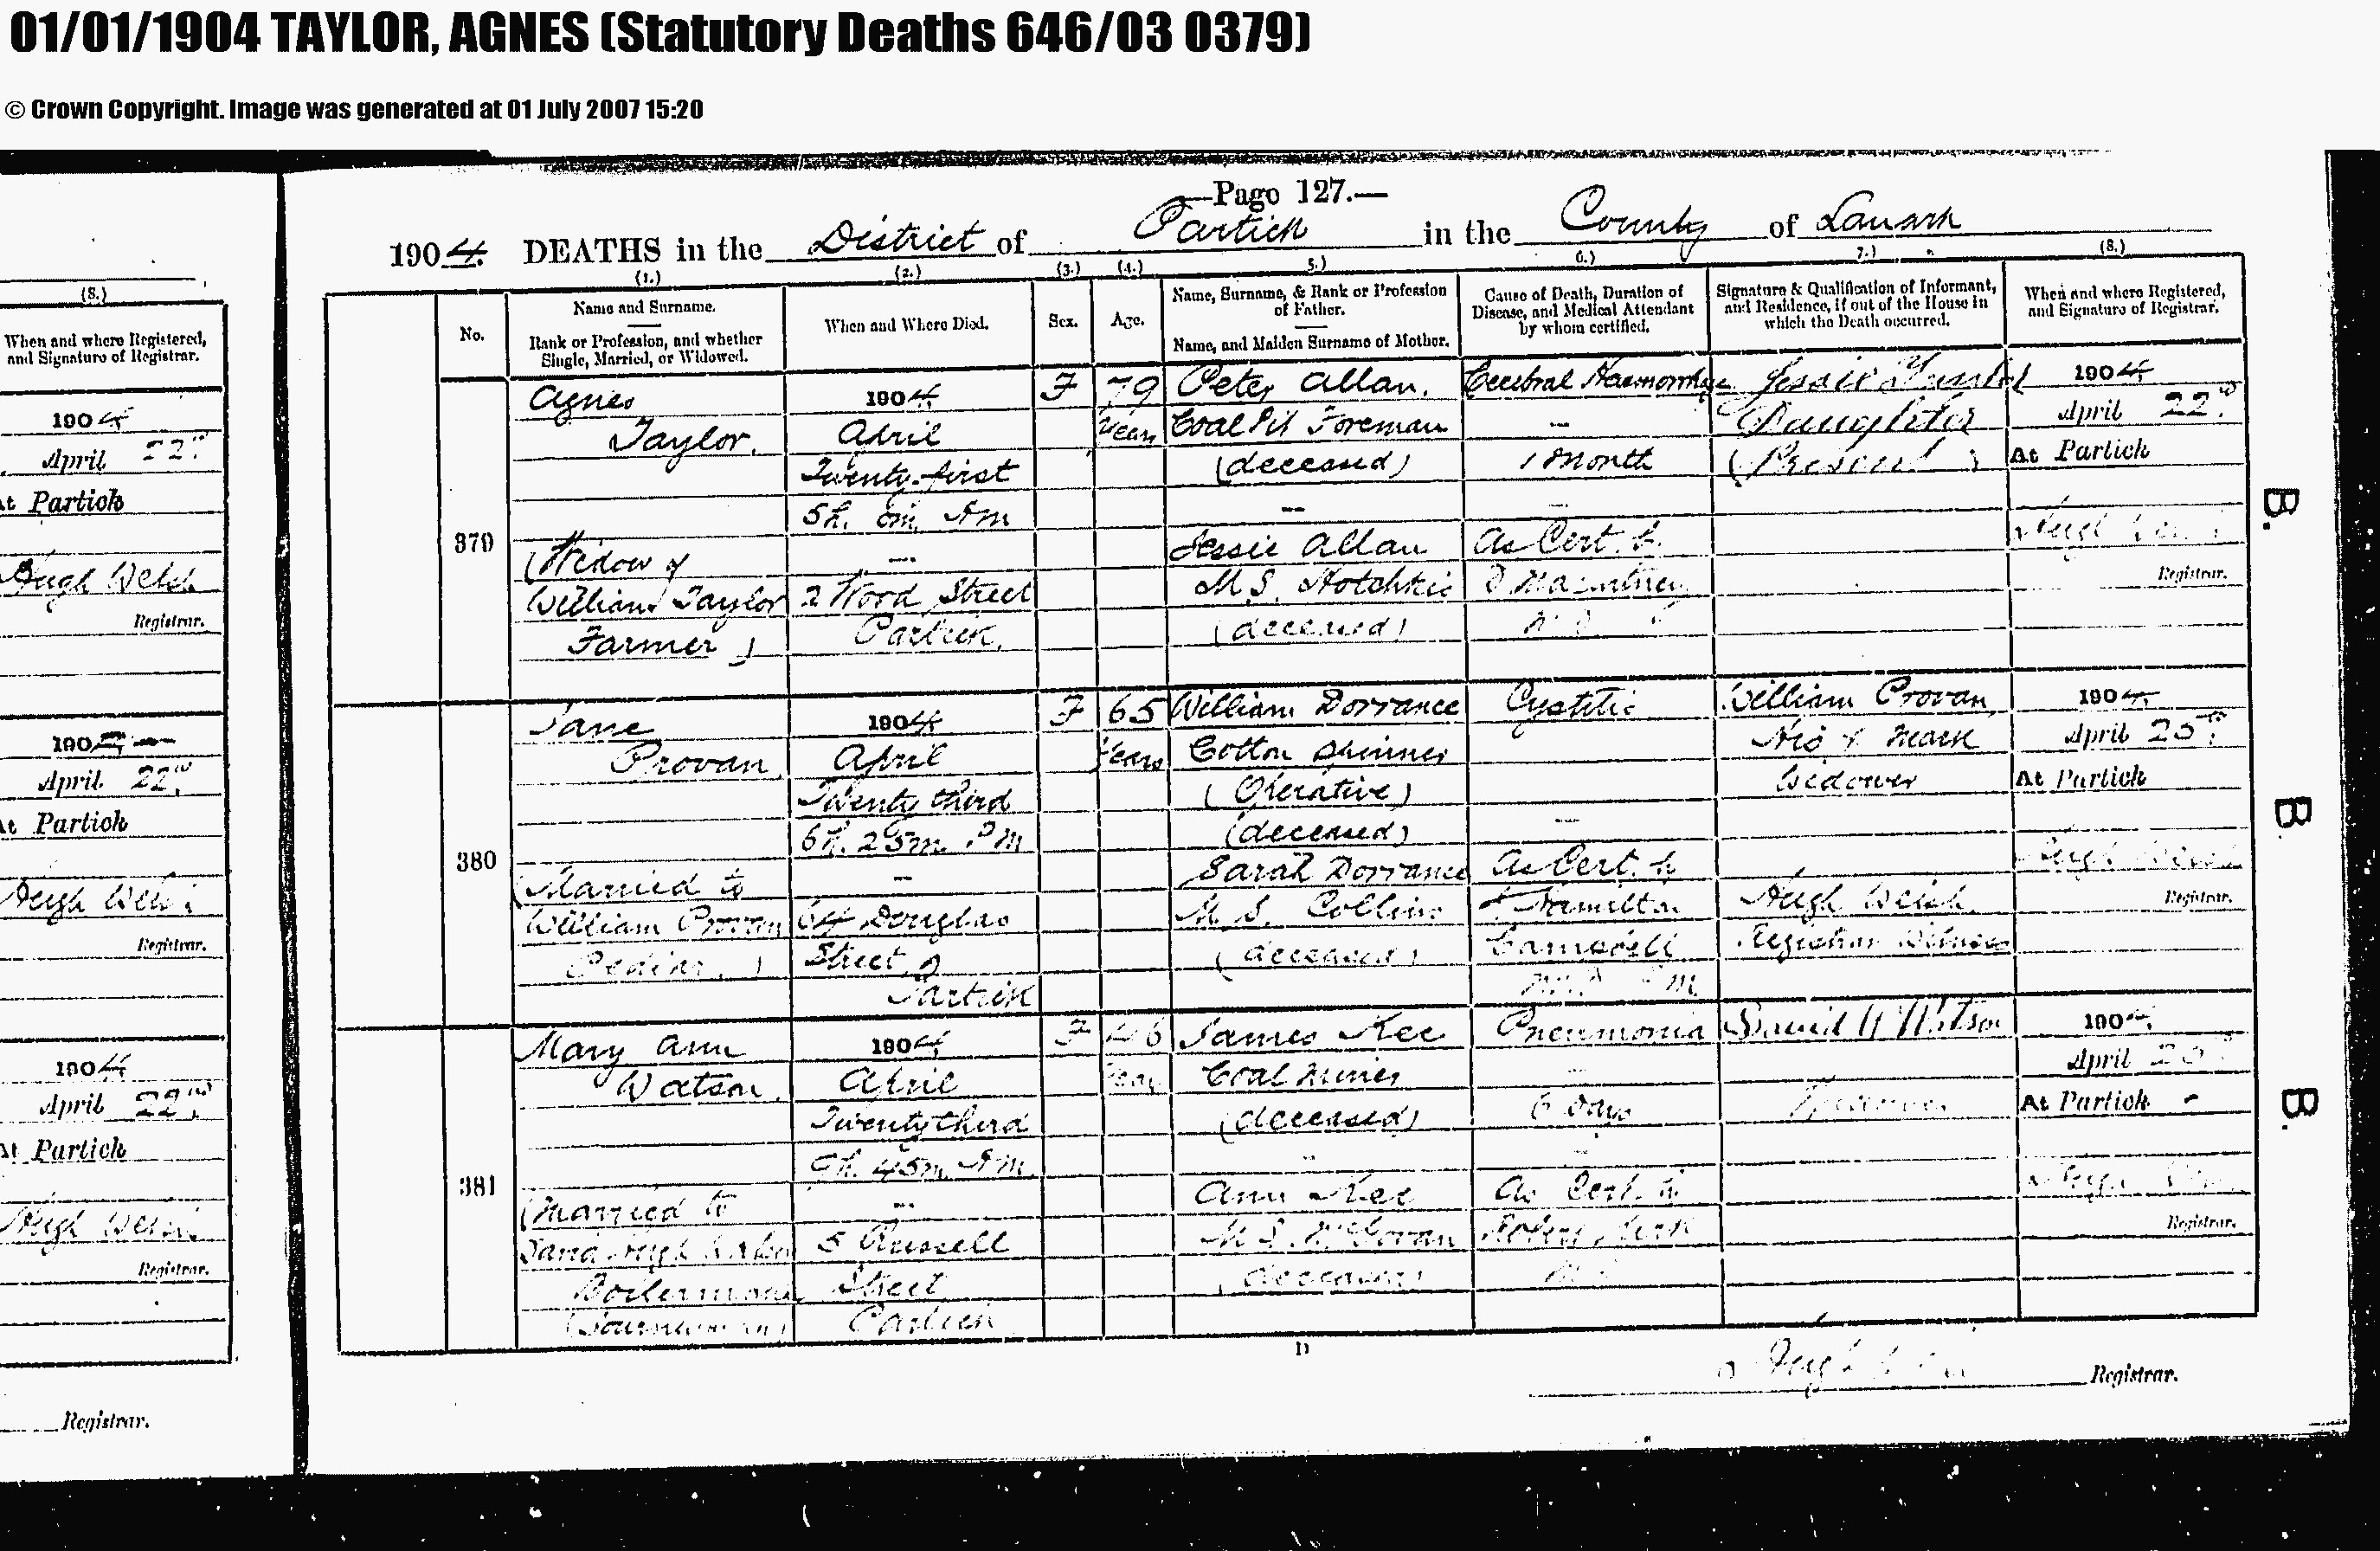 01/01/1904 TAYLOR, AGNES (Statutory Deaths 646/03 0379)
© Crown Copyright. Image was generated at 01 July 2007 15:20
(8.)
When and where Registered,
and Signature of Registrar.
1904
April 22nd
At Partick
Hugh Welsh
Registrar.
1904
April 22nd
At Partick
Hugh Welsh
Registrar.
1904
April 22nd
At Partick
Hugh Welsh
Registrar.
Registrar.
—Page 127.—
1904. DEATHS in the District of Partick in the County of Lanark
(1.) (2.) (3.) (4.) 5.) 6.) 7.) (8.)
No.
Name and Surname.
Rank or Profession, and whether
Single, Married, or Widowed.
When and Where Died.
Sex.
Age.
Name, Surname, & Rank or Profession
of Father.
Name, and Maiden Surname of Mother.
Cause of Death, Duration of
Disease, and Medical Attendant
by whom certified.
Signature & Qualification of Informant,
and Residence, if out of the House in
which the Death occurred.
When and where Registered,
and Signature of Registrar.
379
Agnes
Taylor.
(Widow of
William Taylor
Farmer)
1904.
April
Twenty-first
5h. 0m. PM
2 Wood Street
Partick.
F
79
Years
Peter Allan.
Coal Pit Foreman
(deceased)
Jessie Allan
M.S. Hotchkis
(deceased)
Cerebral Haemorrhage
1 Month
As Cert. by
Jessie
Daughter
(Present)
1904.
April 22nd
At Partick
Hugh Welsh
Registrar.
B.
380
Jane
Provan.
(Married to
William Provan
1904.
April
Twenty third
6h. 25m. PM
64 Douglas
Street
Partick
F
65
Years
William Dorrance
Cotton Spinner
(Operative)
(deceased)
Sarah Dorrance
M.S. Collins
(deceased)
Cystitis
As Cert. by
Hamilton
Campbell
William Provan
His x mark
Widower
Hugh Welsh
Registrar Witness
1904.
April 25th
At Partick
Hugh Welsh
Registrar.
B.
381
Mary Ann
Watson.
(Married to
Boilermaker
(Journeyman)
1904.
April
Twenty third
45m.
5 Russell
Street
Partick
F
46
Years
James Kee
Coal Miner
(deceased)
Ann Kee
M.S. McGowan
(deceased)
Pneumonia
6 Days
As Cert. by
Robert
David H Watson
Widower
1904.
April 25th
At Partick
Registrar.
B.
D
Hugh Welsh Registrar.